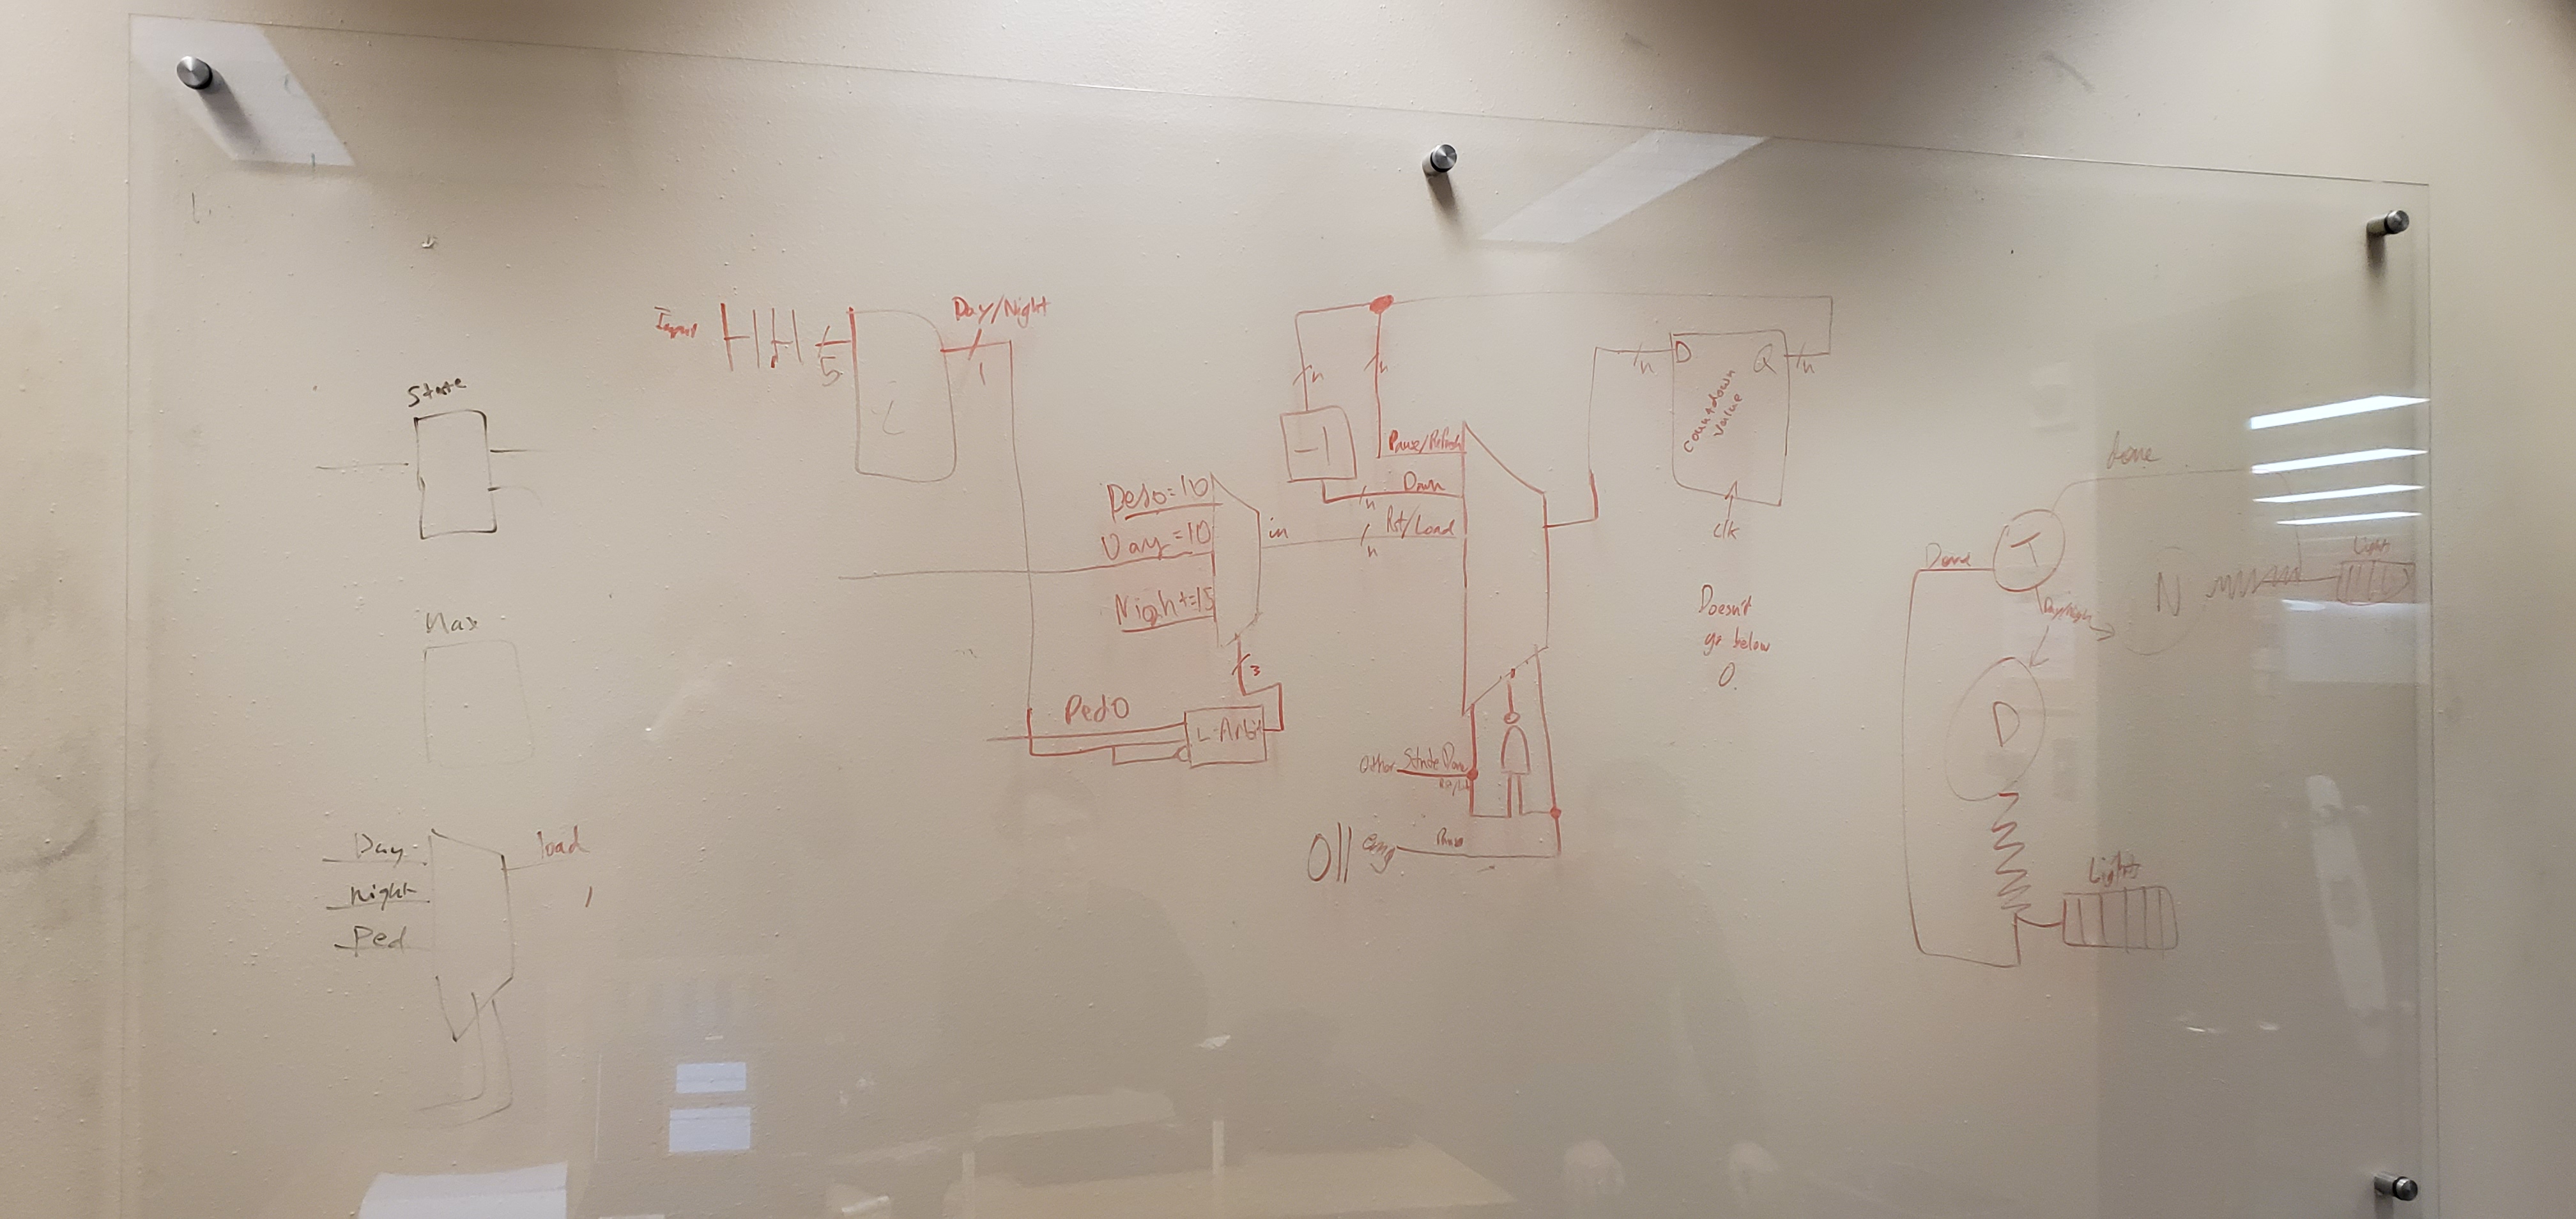 State
Max
Day
load
Night
Ped
Input
5
Day/Night
1
Ped0=10
Day=10
Night=15
in
3
Ped0
L-Arbit
n
n
-1
Pause/Refresh
Down
n
Rst/Load
n
Other State Done
Rst/Ld
011
emg
Pause
n
D
Q
n
Countdown
Value
clk
Doesn't
go below
0.
done
T
Done
Day/Night
N
Light
D
Lights